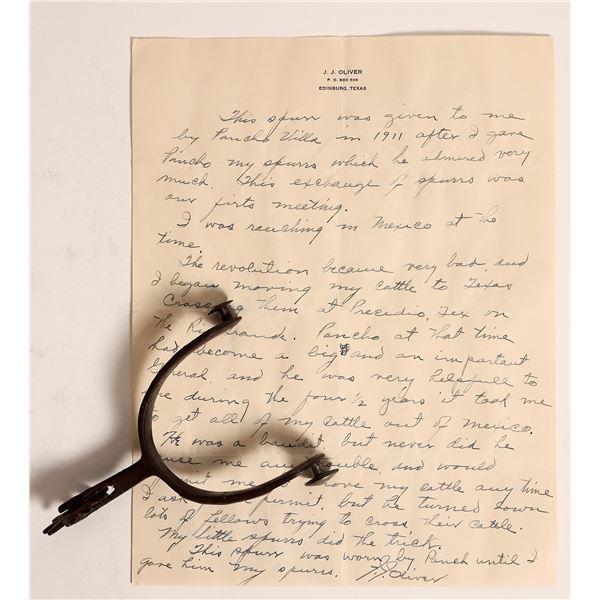 J. J. OLIVER
P. O. BOX 509
EDINBURG, TEXAS
This spurr was given to me
by Pancho Villa in 1911 after I gave
Pancho my spurrs which he admired very
much. This exchange of spurrs was
our firts meeting.
I was ranching in Mexico at the
time.
The revolution became very bad, and
I began moving my cattle to Texas
Crossing them at Precedio, Tex on
The Rio Grande. Pancho at that time
had become a big and an important
General, and he was very helpfull to
me during the four ½ years it took me
to get all of my cattle out of Mexico.
He was a bandit, but never did he
cause me any trouble, and would
permit me to move my cattle any time
I ask for a permit, but he turned down
lots of fellows trying to cross, their cattle.
My little spurrs did the trick.
This spurr was worn by Panch until I
gave him my spurrs. J. J. Oliver